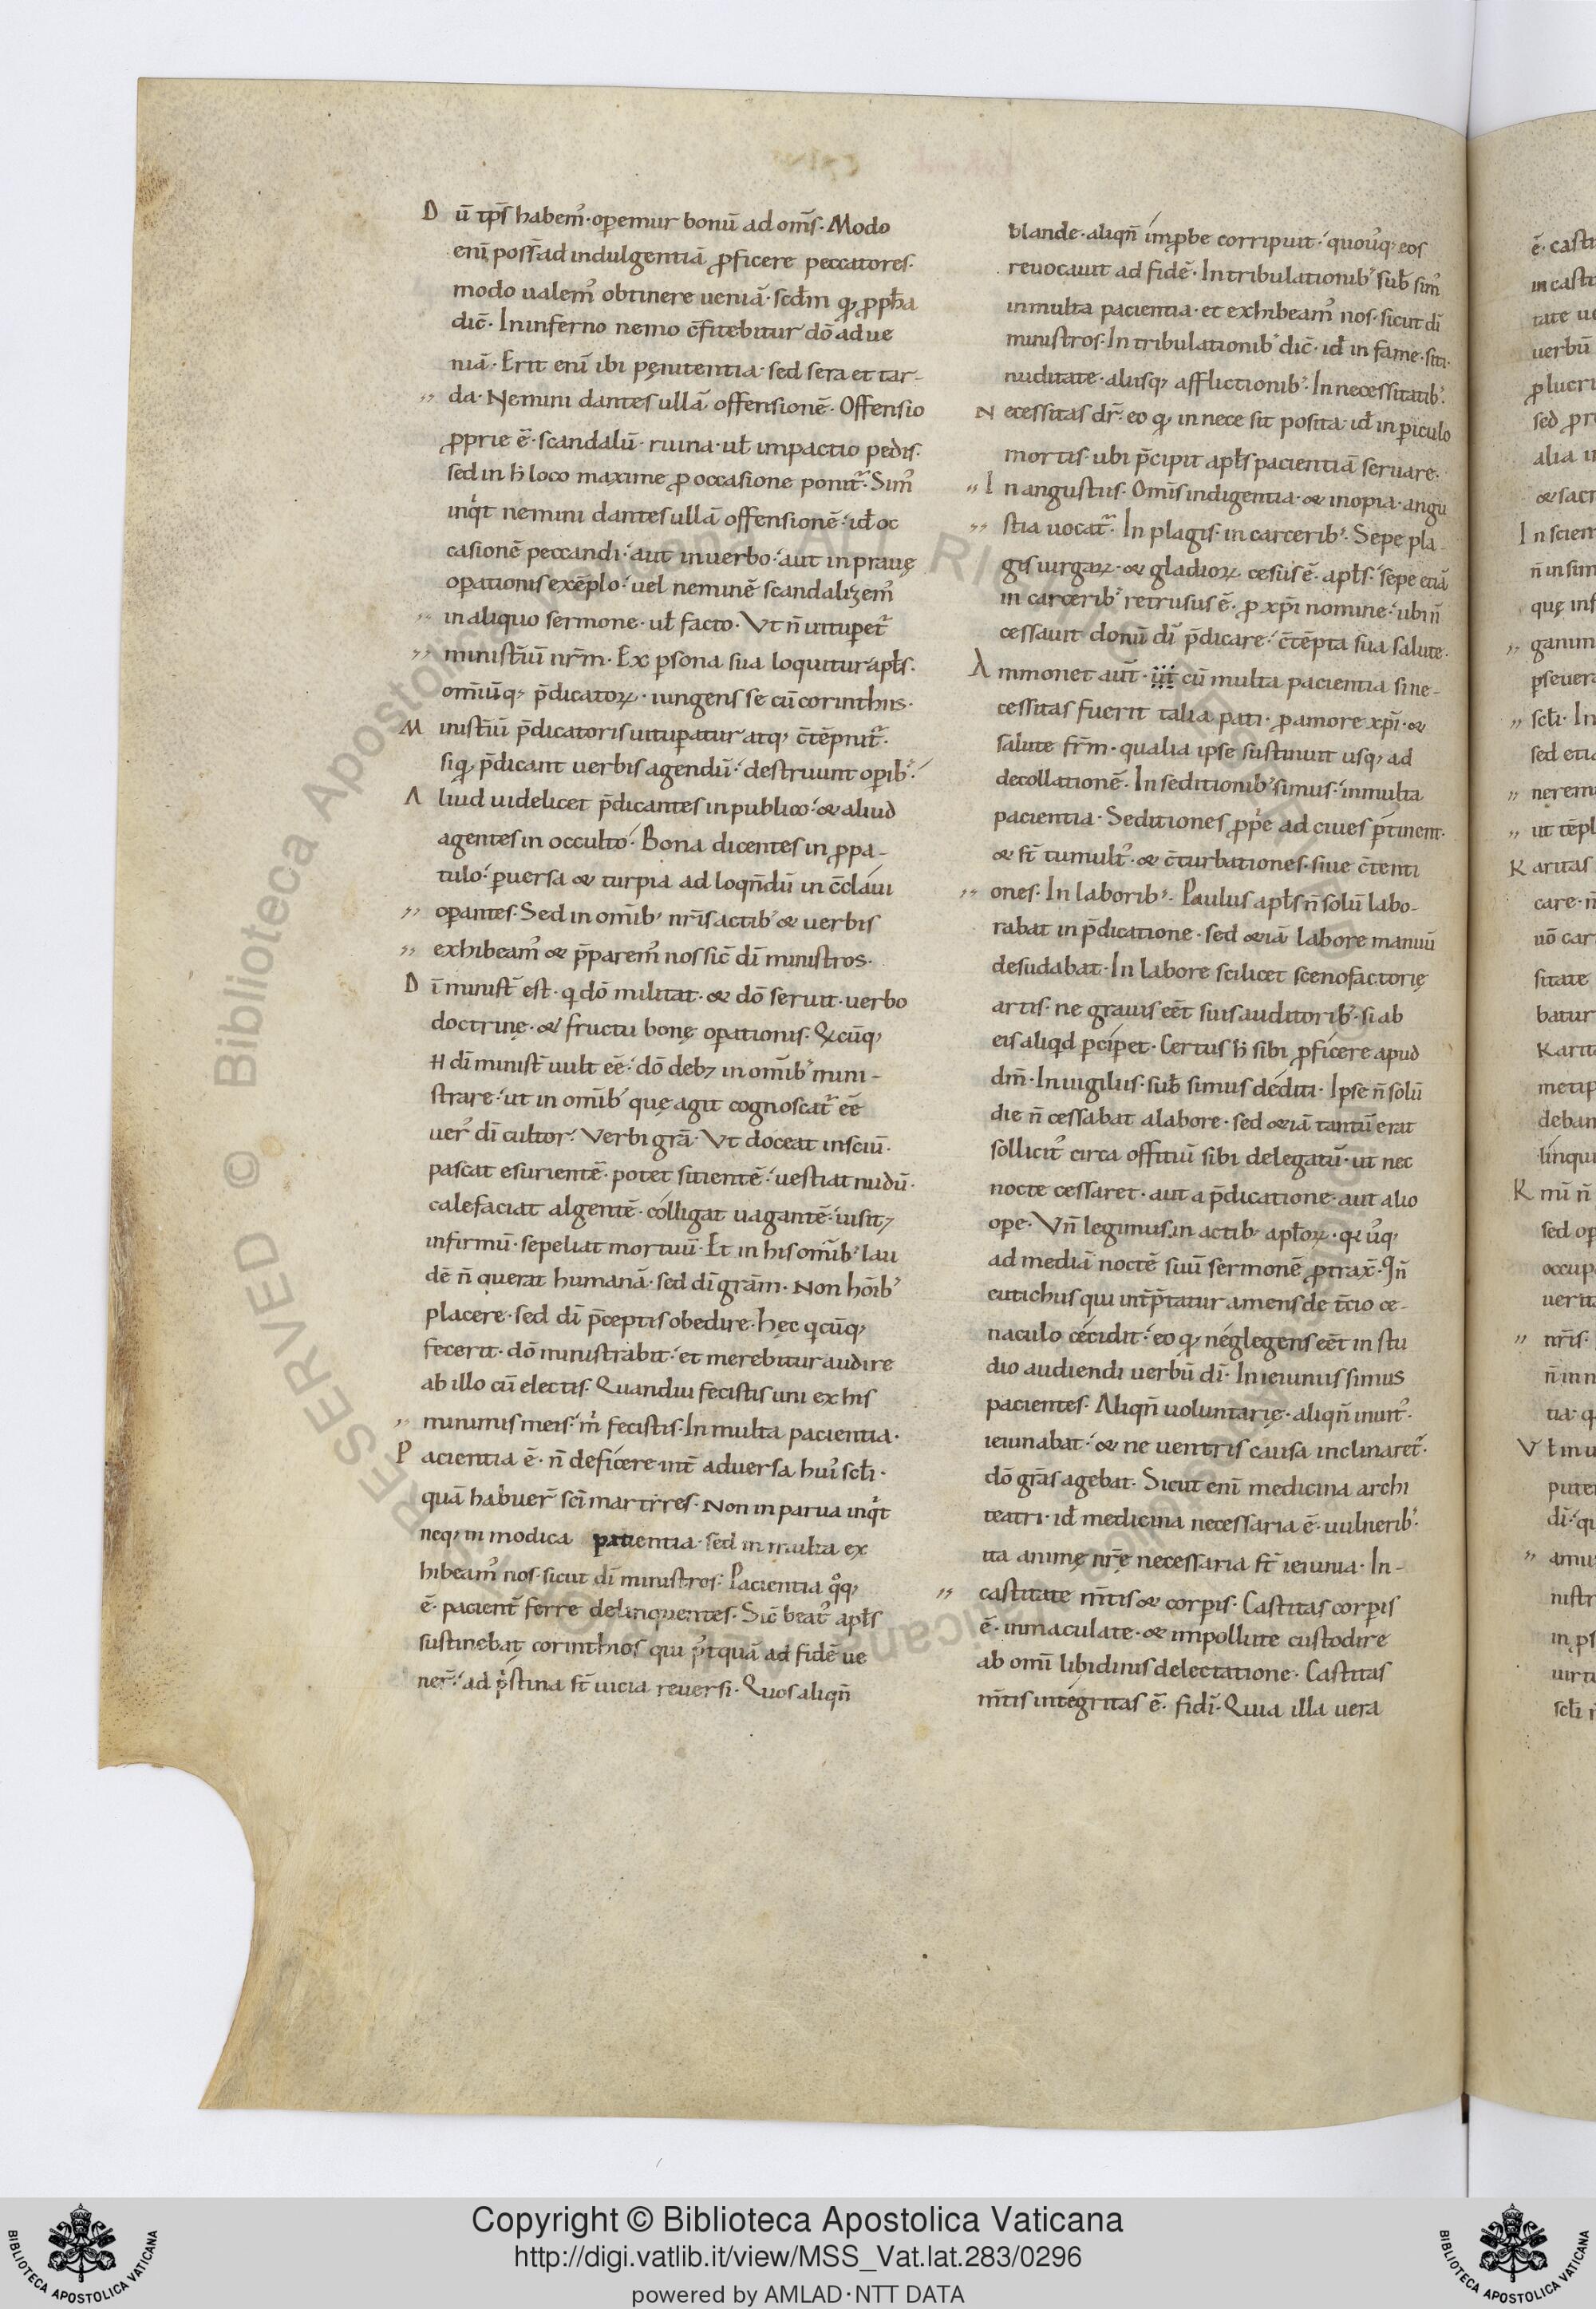 Dū tp̄s habem᷒· oꝑemur bonū ad om̄s· Modo
enī poss̄ ad indulgentiā ꝓficere peccatores·
modo ualem᷒ obtinere ueniā· scđm qꝫ ꝓpħa
dic̄· In inferno nemo c̄fitebitur dō ad ue
niā· Erit enī ibi pęnitentia· sed sera et tar-
da· Nemini dantes ullā offensionē· Offensio
ꝓprie ē· scandalū· ruina· uł impactio pedis·
sed in ħ loco maxime ꝓ occasione ponit᷑· Sim᷒
inqͥt nemini dantes ullā offensionē· iđ oc
casionē peccandi· aut in uerbo· aut in prauę
oꝑationis exēplo· uel neminē scandalizem᷒
in aliquo sermone· uł facto· Vt n̄ uituꝑet᷑
minist̄iū nr̄m· Ex ꝑsona sua loquitur apłs·
om̄iūqꝫ p̄dicatoꝝ· iungens se cū corinthiis·
Minist̄iū p̄dicatoris uituꝑatur atqꝫ c̄tēpnit᷑·
si qꝫ p̄dicant uerbis agendū· destruunt oꝑibꝰ·
Aliud uidelicet p̄dicantes in publico· & aliud
agentes in occulto· Bona dicentes in ꝓpa-
tulo· ꝑuersa & turpia ad loqn̄dū in c̄claui
oꝑantes· Sed in om̄ibꝰ nr̄is actibꝰ & uerbis
exhibeam᷒ & p̄parem᷒ nos sic̄ dī ministros·
Dī minist̄ est· qͥ dō militat· & dō seruit· uerbo
doctrinę· & fructu bonę oꝑationis· Q̇cūqꝫ
H dī minist̄ uult eē· dō debꝫ in om̄ibꝰ mini-
strare· ut in om̄ibꝰ quę agit cognoscat᷑ eē
uer᷒ dī cultor· Verbi grā· Vt doceat insciū·
pascat esurientē· potet sitientē· uestiat nudū·
calefaciat algentē· colligat uagantē· uisitꝫ
infirmū· sepeliat mortuū· Et in his om̄ibꝰ lau
dē n̄ querat humanā· sed dī grām· Non hōibꝰ
placere· sed dī p̄ceptis obedire· Hęc qͥcūqꝫ
fecerit· dō ministrabit· et merebitur audire
ab illo cū electis· Quandiu fecistis uni ex his
minimis meis· mͥ fecistis· In multa pacientia·
Pacientia ē· n̄ deficere int̄ aduersa hui᷒ scłi·
quā habuer̄ scī martires· Non in parua inqͥt
neqꝫ in modica patientia· sed in multa ex
hibeam᷒ nos· sicut dī ministros· Pacientia qͦqꝫ
ē· pacient̄ ferre delinquentes· Sic̄ beat᷒ apłs
sustinebat corinthios qui p᷒tquā ad fidē ue
ner̄· ad pͥstina st̄ uicia reuersi· Quos aliqn̄
blande· aliqn̄ imꝓbe corripuit· quoúqꝫ eos
reuocauit ad fidē· In tribulationibꝰ sub̄ sim᷒
in multa pacientia· et exhibeam᷒ nos· sicut dī
ministros· In tribulationibꝰ dic̄· iđ in fame· siti·
nuditate· aliisqꝫ afflictionibꝰ· In necessitatibꝰ·
Necessitas dr̄· eo qꝫ in nece sit posita· iđ in ꝑiculo
mortis· ubi p̄cipit apłs pacientiā seruare·
In angustiis· Om̄is indigentia· & inopia· angu
stia uocat᷑· In plagis· in carceribꝰ· Sepe pla-
gis uirgaꝝ· & gladioꝝ cesus ē· apłs· sepe etiā
in carceribꝰ retrusus ē· ꝓ xp̄i nomine· ubi n̄
cessauit donū dī p̄dicare· c̄tēpta sua salute·
Ammonet aut̄· ut cū multa pacientia si ne-
cessitas fuerit talia pati· ꝓ amore xp̄i· &
salute fr̄m· qualia ipse sustinuit usqꝫ ad
decollationē· In seditionibꝰ simus· in multa
pacientia· Seditiones ꝓpͥe ad ciues ꝑtinent·
& st̄ tumult᷒· & c̄turbationes· siue c̄tenti
ones· In laboribꝰ· Paulus apłs n̄ solū labo-
rabat in p̄dicatione· sed &iā labore manuū
desudabat· In labore scilicet scenofactorię
artis· ne grauis eēt suis auditoribꝰ· si ab
eis aliqͥd ꝑciꝑet· Certus ħ sibi ꝓficere apud
dm̄· In uigiliis· sub̄ simus dediti· Ipse n̄ solū
die n̄ cessabat a labore· sed &iā tantū erat
sollicit᷒ circa offitiū sibi delegatū· ut nec
nocte cessaret· aut a p̄dicatione· aut alio
oꝑe· Vn̄ legimus in actibꝰ apłoꝝ· qꝫ u᷒qꝫ
ad mediā noctē suū sermonē ꝓtrax̄· Qn̄
eutichus qui int̄p̄tatur amens de t̄cio ce-
naculo cecidit· eo qꝫ neglegens eēt in stu
dio audiendi uerbū dī· In ieiuniis simus
pacientes· Aliqn̄ uoluntarię· aliqn̄ inuit᷒·
ieiunabat· & ne uentris causa inclinaret᷑·
dō grās agebat· Sicut enī medicina archi
teatri· iđ medicina necessaria ē· uulneribꝰ·
ita animę nr̄ę necessaria st̄ ieiunia· In-
castitate m̄tis & corꝑis· Castitas corꝑis
ē· inmaculate· & impollute custodire
ab omī libidinis delectatione· Castitas
m̄tis integritas ē· fidī· Quia illa uera
Copyright © Biblioteca Apostolica Vaticana
http://digi.vatlib.it/view/MSS_Vat.lat.283/0296
powered by AMLAD·NTT DATA